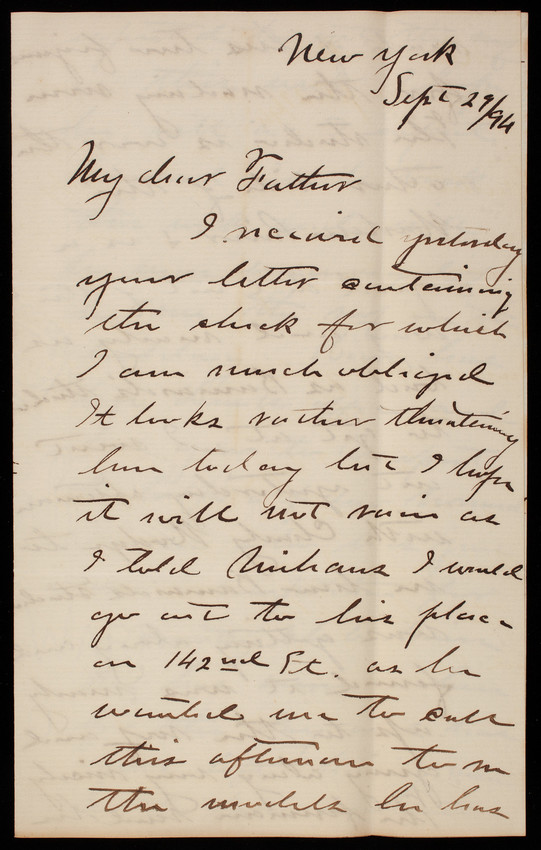 New York
Sept 29/94
My dear Father
I received yesterday
your letter containing
the check for which
I am much obliged
It looks rather threatening
here today but I hope
it will not rain as
I told I would
go out to his place
on 142nd St. as he
wanted me to call
this afternoon to see
the models he has